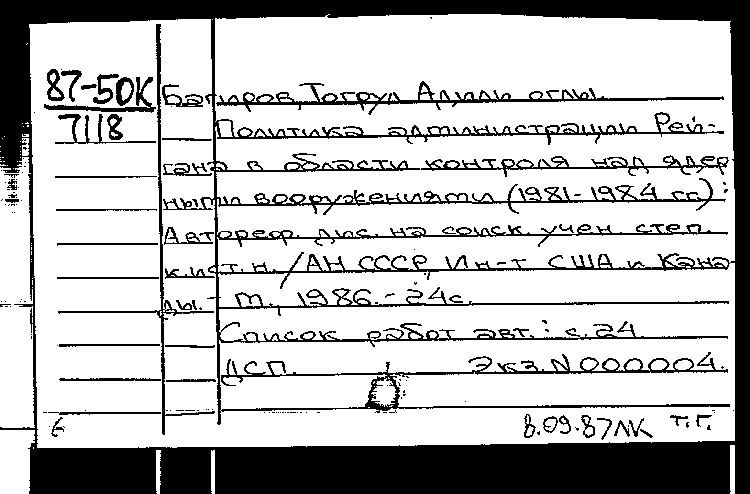 87-50К
7118
Багиров, Тогрул Адили оглы.
Политика администрации Рей-
гана в области контроля над ядер
ными вооружениями (1981-1984 гг.) :
Автореф. дис. на соиск. учен. степ.
к.ист.н. / АН СССР, Ин-т США и Кана-
ды. - М., 1986. - 24с.
Список работ авт.: с.24
ДСП. Экз. N 000004.
8.09.87 ЛК Т.Г.